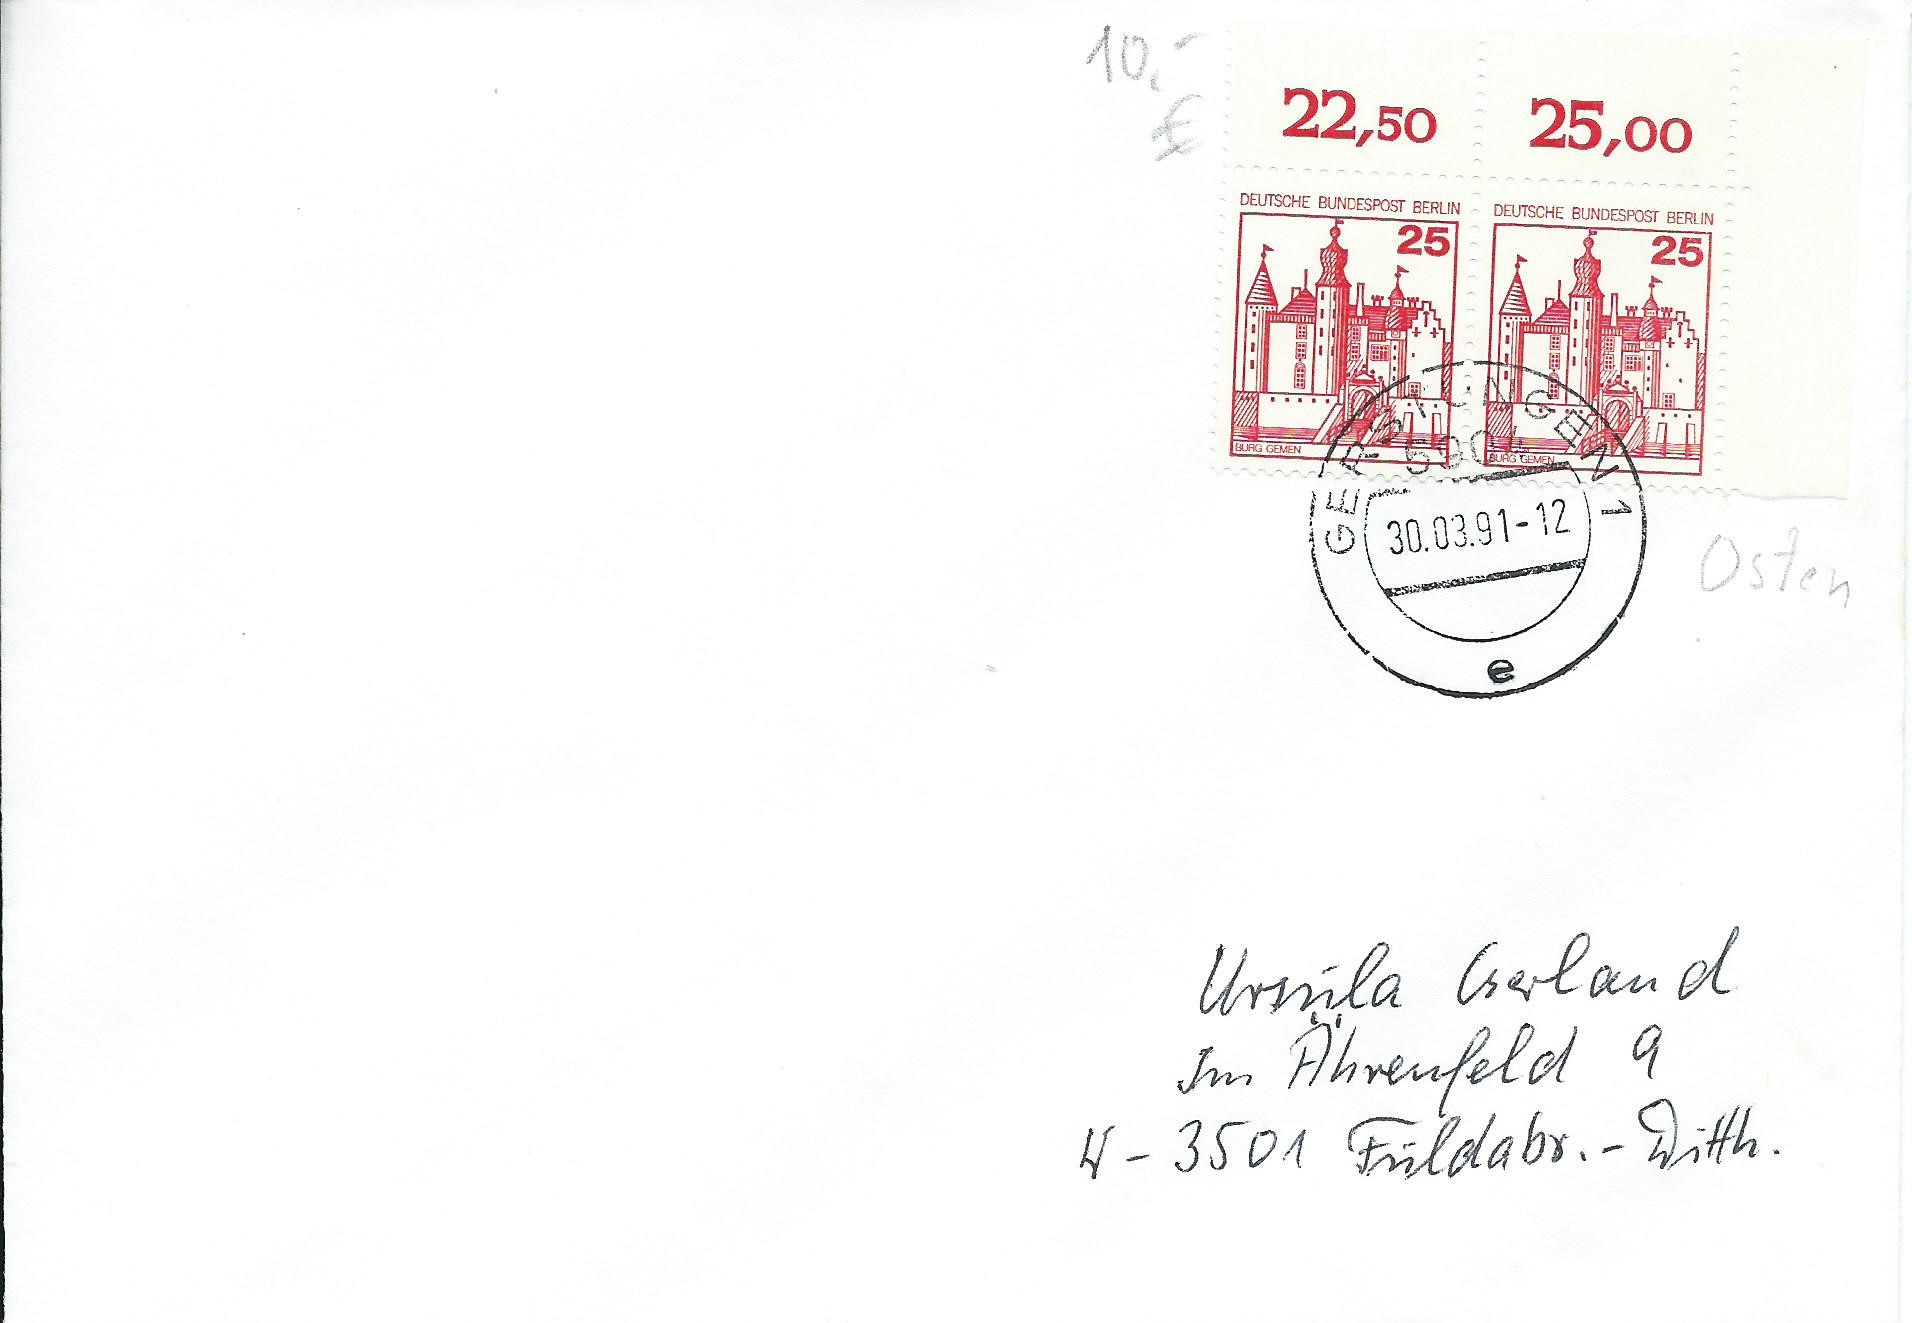 10,-
€
22,50 25,00
DEUTSCHE BUNDESPOST BERLIN DEUTSCHE BUNDESPOST BERLIN
25 25
BURG GEMEN BURG GEMEN
GERSTUNGEN 1
5904
30.03.91-12
e
Osten
Ursula Cserland
Im Ährenfeld 9
W-3501 Fuldabr.-Ditth.